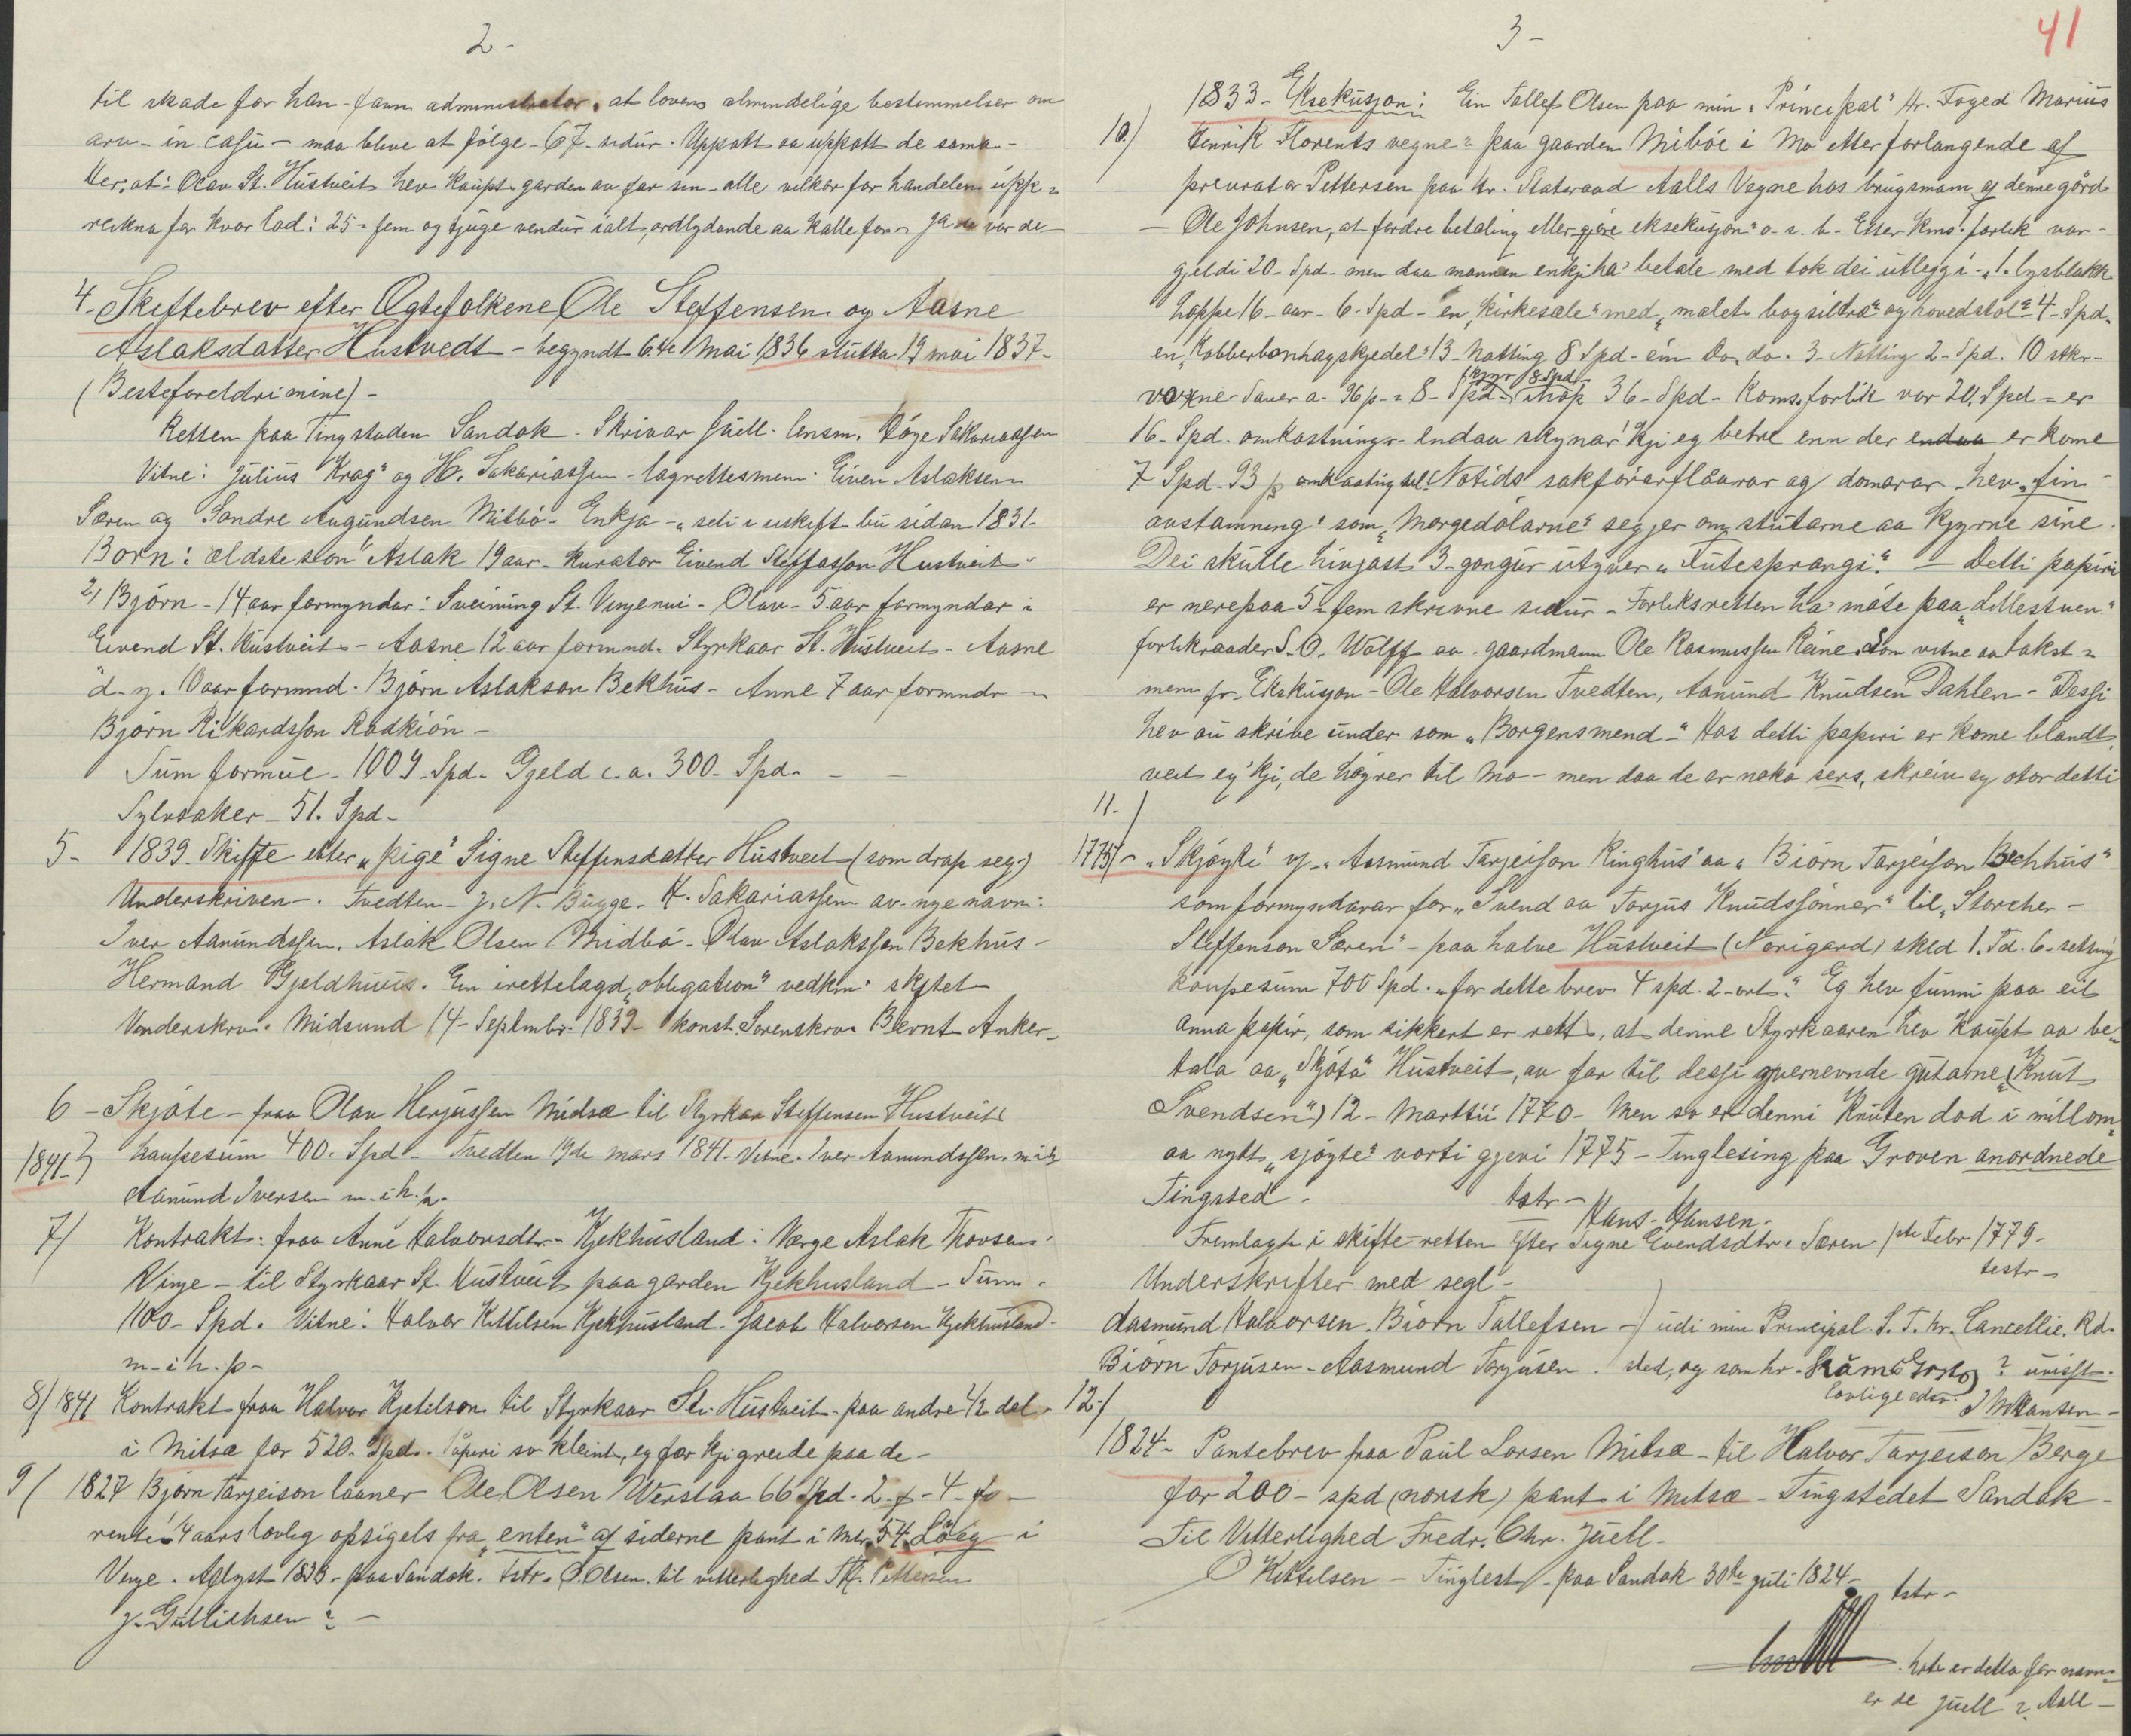 2-
til skade for han-faum administrator. at lovens almindelige bestemmelser om
arv- in casu- maa blive at fölge-67-sidur. Uppatt aa uppatt de sama-
Her, at: Olav St. Hustveit hev kaupt garden av far sin-alle vilkor for handelen upp=
rekna for kvor lod: 25= fem og tjuge vendur ialt, ordlydande aa kalle for- var de-
4. Skiftebrev efter Ægtefolkene Ole Steffensen og Aasne
Aslaksdatter Hustvedt-begyndt 6.te Mai 1836 slutta 19 mai 1837-
(Besteforeldri mine)-
Retten paa Tingstaden Sandok. Skrivar Juell. lensm. Höye Sakariassen
Vitne: Julius "Krag" og H. Sakariassen-lagrettesmenn: Eiven Aslaksen
Særen og Sondre Augundsen Mitbö- Enkja-"sidi i uskift bu sidan 1831-
Born: ældste son" Aslak 19 aar- kurator Eivend Steffasson Hustveit-
2, Björn-14 aar formyndar: Sveinung St. Vinjenui-Olav-5 aar formyndar i
Eivend St. Hustveit- Aasne 12 aar formnd. Styrkaar St. Hustveit-Aasne
"d. y. 10 aar formnd. Björn Aslakson Bekhus-Anne 7 aar formndr-
Björn Rikardsson Rodkiön-
Sum formue-1009-Spd. Gjeld c.a. 300-Spd.--
Sylvsaker-51. Spd-
5- 1839. Skifte etter "pige" Signe Steffensdatter Hustveit (som drap seg)
Underskriven-. Tvedten-J. N. Bugge. H. Sakariassen av. nye navn:
Iver Aanundssen. Aslak Olsen Midbö-Olav Aslakssen Bekhus-
Hermand Gjeldhuus. En irettelagd "obligation" vedkm. skytet
Underskrv. Midsund 14-Septmbr. 1839- konst. Sorenskrv. Bernt Anker-
6-Skjöte-fraa Olav Herjussen Midsæ til Styrkar Steffensen Hustveit
1841-) kaupesum 400. Spd- Tvedten 19de mars 1841- Vitne. Iver Aanundssen. m.i.h.
Aanund Iversen m.i.h.p.
7/ Kontrakt: fraa Anne Halvorsdtr- Kjekhusland: Værge Aslak Thovsen-
Vinje-til Styrkaar St. Hustveit paa garden Kjekhusland-Sum.
1100- Spd. Vitne: Halvor Kittilsen Kjekhusland-Jacob Halvorsen Kjekhusland-
m-i h. p-
8/ 1841 Kontrakt fraa Halvor Kjetilson til Styrkaar St. Hustveit-paa andre 1/2 del-
i Mitsæ for 520. Spd. Papiri so kleint, eg fær kji greide paa de-
9/ 1827 Björn Tarjeison laaner Ole Olsen Verslaa 66 Spd. 2-f-4-fo-
rente 4 aars lovlig opsigels fra "enten" af siderne pant i mtr. 54 Löeg i
Vinje. Aflyst 1833-paa Sandok. tstr. O. Olsen. til vitterlighed Th. Pettersen
J. Gullichsen?-
3-
41
10/ 1833-Eksekusjon: Ein Tallef Olsen paa min "Principal" Hr. Foged Marius
Henrik Florents vegne= paa gaarden Miböe i Mo etter forlangende af
prcurator Pettersen paa Hr. Statsraad Aalls Vegne hos brugsmann af denne gård
-Ole Johnsen, at fordre betaling eller gjöre eksekusjon" o. s. v.- Etter kms. forlik var-
gjeldi 20-Spd-men daa mannen enkji ha' betale med tok dei utleggi-"1. lysblakk
hoppe 16-aar-6-Spd-en "kirkesæle" med "malet bogsiltra" og hovedstol" 4-Spd.
en "Kobberbonhagskjedel" 13-Notting 8 Spd-ein do. do. 3-Notting 2-Spd. 10 stkr-
voxne Sauer a. 96 p-=8-Spd- (kyr 8 Spd) ihop 36-Spd-Koms.forlik var 20. Spd-er
16-Spd. omkostningr-endaa skynar' kji eg betre enn der endaa er kome
7 Spd. 93 p omkosting til. Notids sakförarflåarar og domarar-hev "fin-
avstamning" som "Morgedölarne" segjer om stutarne aa kjyrne sine.
Dei skulle hivjast 3-gongur utyver "Futesprangi."-Detti papiri
er nerepaa 5=fem skrivne sidur-Forliksretten ha' möte paa "Lillestuen"
forlikraader S. O. Wolff aa. gaardmann Ole Rasmussen Reine. Som vitne aa takst=
menn fr. Ekskusjon-Ole Halvorsen Tvedten, Aanund Knudsen Dahlen-Dessi
hev au skrive under som "Borgensmend-" Hos detti papiri er kome blandt,
veit eg'kji, de högrer til Mo-men daa de er noko sers, skreiv eg otor detti
11-/
1775/- "Skjöyti" vj-"Aasmund Tarjeison Ringhus" aa "Biörn Tarjeison Bechhus"
som formyndarar for "Svend aa Torjus Knudssönner" til "Storcher-
Steffenson Særen"-paa halve Hustveit (Norigard) skld 1. Td. 6-setting
kaupesum 700 Spd. "for dette brev 4 spd. 2-ort." Eg hev funni paa eit
anna papir, som sikkert er rett, at denne Styrkaaren hev kaupt aa be=
tala aa "Skjöta" Hustveit, av far til dessi yvernevnde gutarne (Knut
Svendsen") 12-Marttii 1770-Men so er denni Knuten död i millom"
aa nytt "sjöyte" vorti gjevi 1775-Tinglesing paa Groven anordnede
Tingsted-
tstr-Hans-Hansen-
Fremlagt i skifte-retten Efter Signe Eivendsdtr. Særen-1ste Febr 1779-
testr-
Underskrifter med segl-
Aasmund Halvorsen. Biörn Tallefsen-) udi min Principal. S. T. hr. Cancellie. Rd.
Biörn Torjusen-Aasmund Torjusen. sted, og som hr. ? uvisst.
Lovlige I M Hansen-
12-/
1824-Pantebrev fraa Paul Larsen Mitsæ-til Halvor Tarjeison Berge
for 200-spd (norsk) pant i Mitsæ-Tingstedet Sandok-
Til Vitterlighed Fredr. Chr. Juell-
O Kittelsen-Tinglest-paa Sandok 30te juli 1824-
tstr-
kva er detta for navn=
er de Juell? Aall-